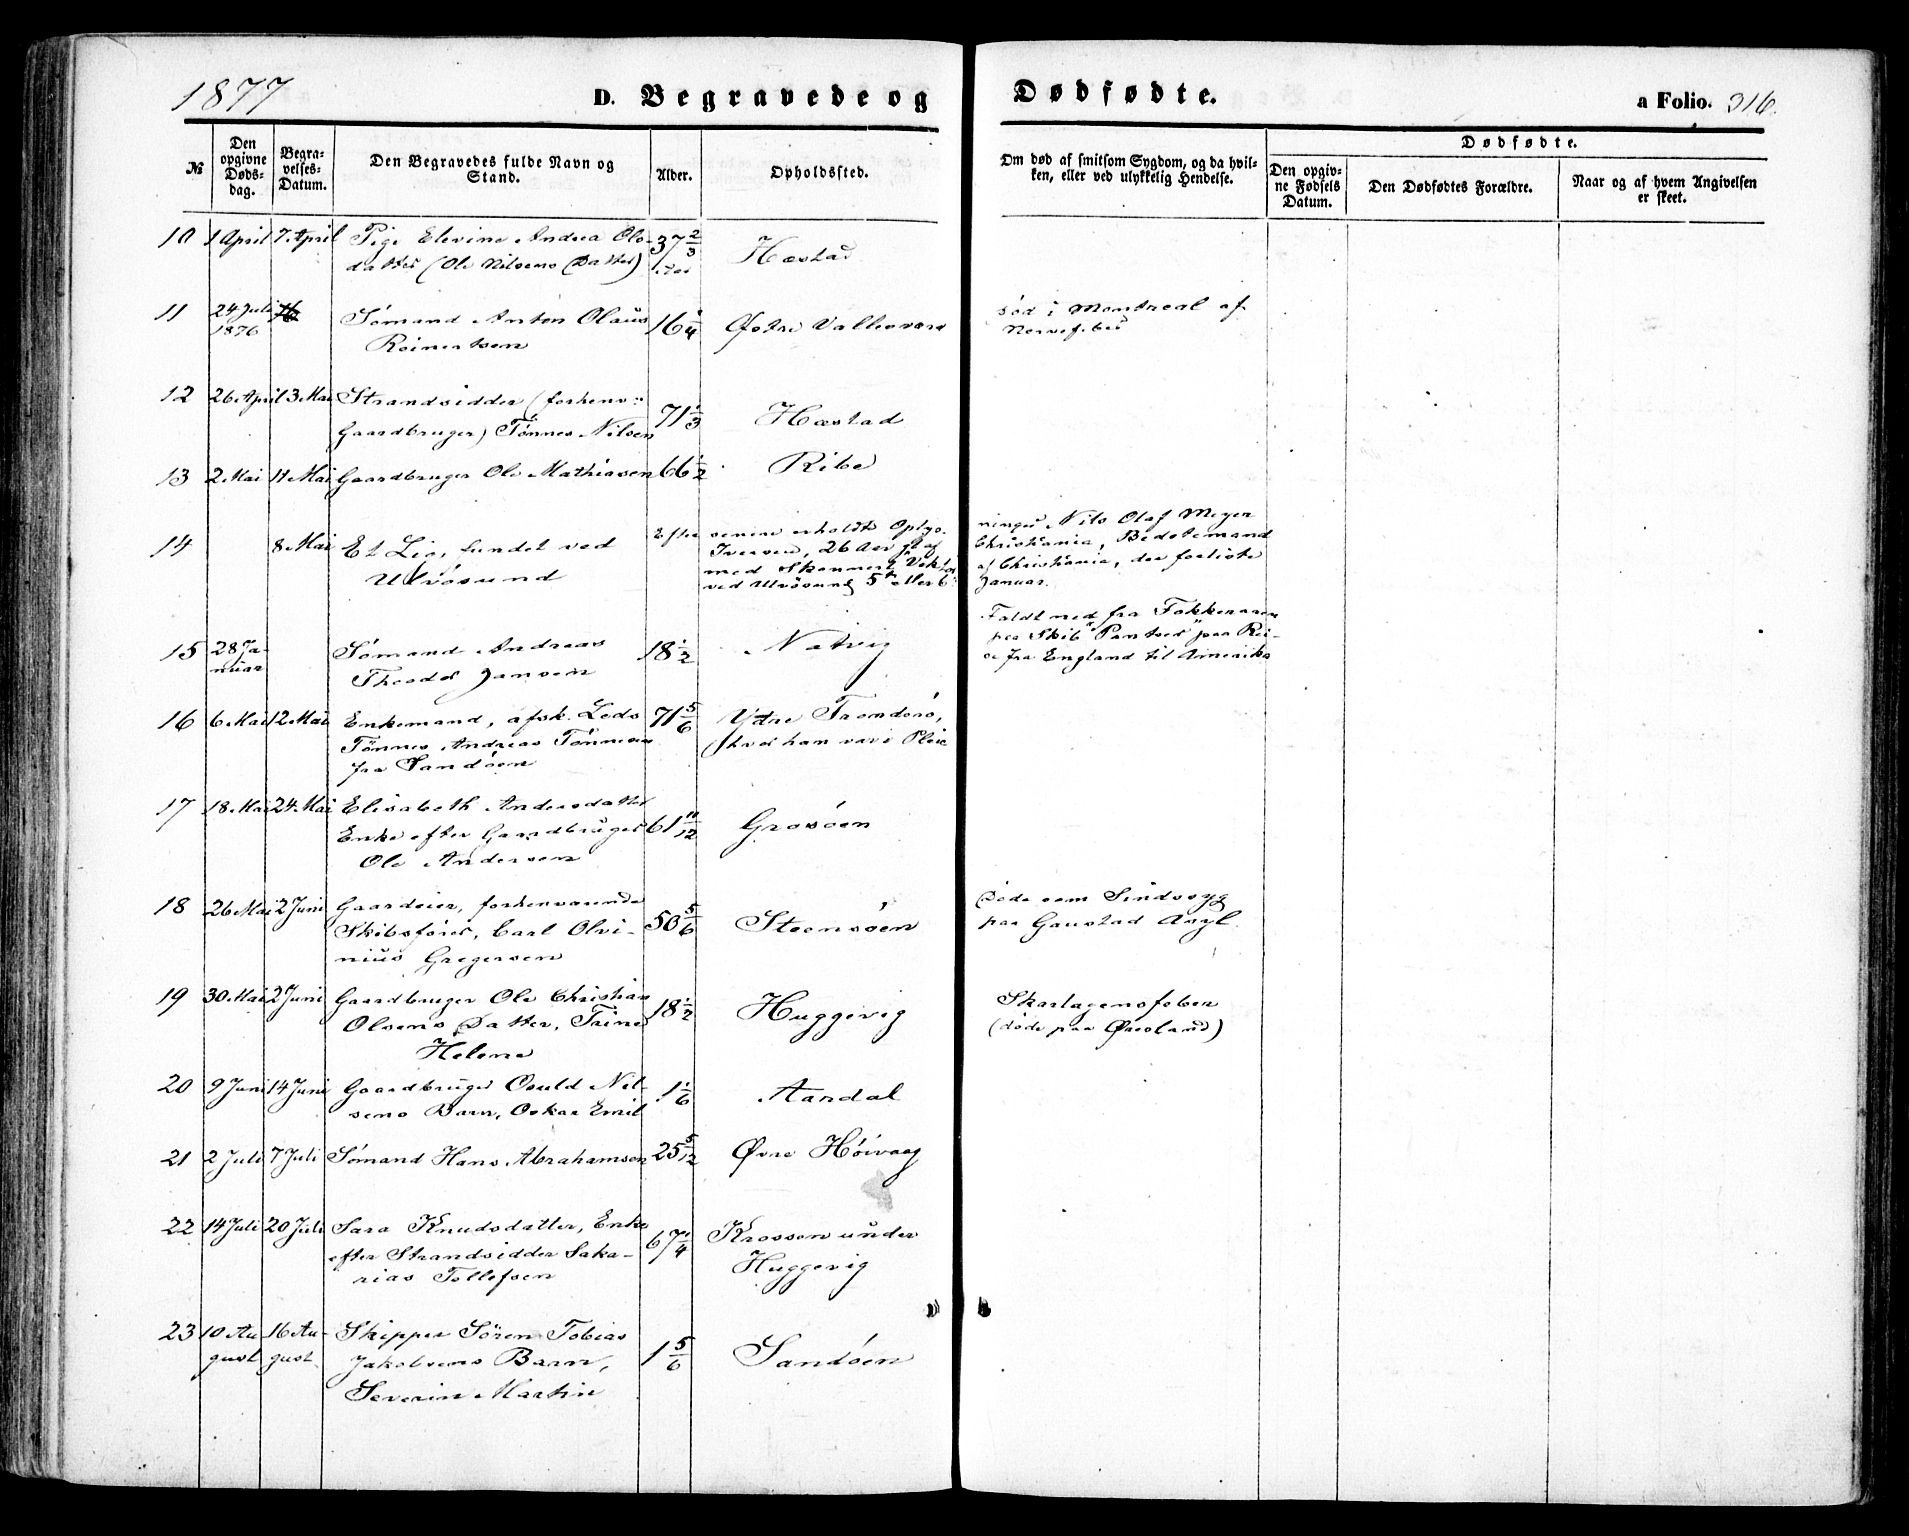 1877
D. Begravede og Dødfødte.
a Folio. 316.
№
Den opgivne Døds-dag.
Begra-velses-Datum.
Den Begravedes fulde Navn og Stand.
Alder.
Opholdsted.
Om død af smitsom Sygdom, og da hvil-
ken, eller ved ulykkelig Hendelse.
Dødfødte.
Den opgiv-ne Fødsels Datum.
Den Dødfødtes Forældre.
Naar og af hvem Angivelsen er skeet.
10 1 April 7 April Pige Elevine Andrea Ols- 37 2/3 Hæstad
datter (Ole Nilsens Datter) Aar
11 24 Juli Sømand Anton Olaus 16 1/4 Østre Vallesværd død i Montreal af
1876 Reinertsen Nervefeber
12 26 April 3 Mai Strandsidder (forhenv: 71 1/3 Hæstad
Gaardbruger) Tønnes Nilsen
13 2 Mai 11 Mai Gaardbruger Ole Mathiasen 66 1/2 Ribe
14 8 Mai Et Lig, fundet ved Efter senere erholdte Oplys- ninger Nils Olaf Meyer
Ulvøsund Iversen, 26 Aar gl af Christiania, Bedstemand
med Skonnert Vektor af Christiania, der forliste
ved Ulvøsund 5te eller 6te Januar.
15 28 Ja- Sømand Andreas 18 1/2 Natvig Faldt ned fra Fokkeraaen
nuar Theodor Jansen paa Skib "Pantser" paa Rei-
se fra England til Amerika
16 6 Mai 12 Mai Enkemand, afsk. Lods 71 5/6 Ydre Trondersø,
Tønnes Andreas Tønnesen hvor han var i Pleie
fra Sandøen
17 18 Mai 24 Mai Elisabeth Andersdatter 61 11/12 Grosøen
Enke efter Gaardbruger
Ole Andersen
18 26 Mai 2 Juni Gaardeier, forhenværende 50 5/6 Steensøen Døde som Sindssyg
Skibsfører, Carl Olvi- paa Gaustad Asyl.
nius Gregersen
19 30 Mai 2 Juni Gaardbruger Ole Christian 18 1/2 Huggevig Skarlagensfeber
Olsens Datter, Trine (døde paa Øresland)
Helene
20 9 Juni 14 Juni Gaardbruger Osuld Nil- 1 1/6 Aandal
sens Barn, Oskar Emil
21 2 Juli 7 Juli Sømand Hans Abrahamsen 25 5/12 Øvre Høivaag
22 14 Juli 20 Juli Sara Knudsdatter, Enke 67 1/4 Krossen under
efter Strandsidder Saka- Huggevig
rias Tollefsen
23 10 Au- 16 Au- Skipper Søren Tobias 1 5/6 Sandøen
gust gust Jakobsens Barn,
Severin Martin